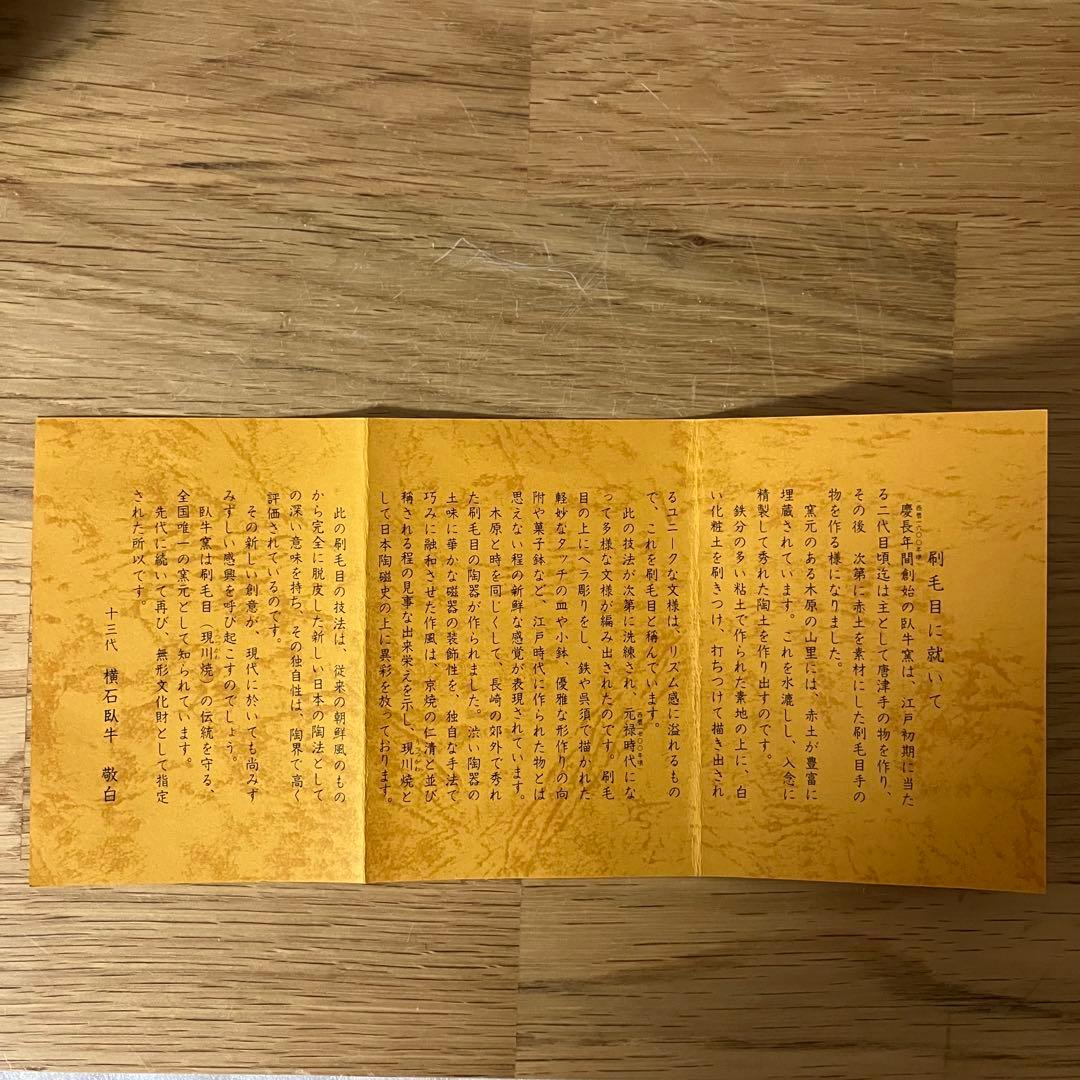 刷毛目に就いて
西暦一六〇〇年頃
慶長年間創始の臥牛窯は、江戸初期に当た
る二代目頃迄は主として唐津手の物を作り、
その後　次第に赤土を素材にした刷毛目手の
物を作る様になりました。
窯元のある木原の山里には、赤土が豊富に
埋蔵されています。これを水漉し、入念に
精製して秀れた陶土を作り出すのです。
鉄分の多い粘土で作られた素地の上に、白
い化粧土を刷きつけ、打ちつけて描き出され
るユニークな文様は、リズム感に溢れるもの
で、これを刷毛目と稱んでいます。
西暦一七〇〇年頃
此の技法が次第に洗練され、元禄時代にな
って多様な文様が編み出されたのです。刷毛
目の上にヘラ彫りをし、鉄や呉須で描かれた
軽妙なタッチの皿や小鉢、優雅な形作りの向
附や菓子鉢など、江戸時代に作られた物とは
思えない程の新鮮な感覚が表現されています。
木原と時を同じくして、長崎の郊外で秀れ
た刷毛目の陶器が作られました。渋い陶器の
土味に華かな磁器の装飾性を、独自な手法で
巧みに融和させた作風は、京焼の仁清と並び
稱される程の見事な出来栄えを示し、現川焼と
して日本陶磁史の上に異彩を放っております。
此の刷毛目の技法は、従来の朝鮮風のもの
から完全に脱皮した新しい日本の陶法として
の深い意味を持ち、その独自性は、陶界で高く
評価されているのです。
その新しい創意が、現代に於いても尚みず
みずしい感興を呼び起こすのでしょう。
臥牛窯は刷毛目（現川焼）の伝統を守る、
全国唯一の窯元として知られています。
先代に続いて再び、無形文化財として指定
された所以です。
十三代　横石臥牛　敬白